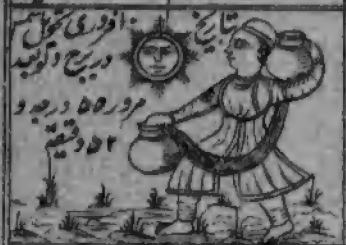 تاریخ ۱ فروری تحویل شمس
در برج دلو بعد
مرور ۵۵ درجہ و
۵۲ دقیقہ